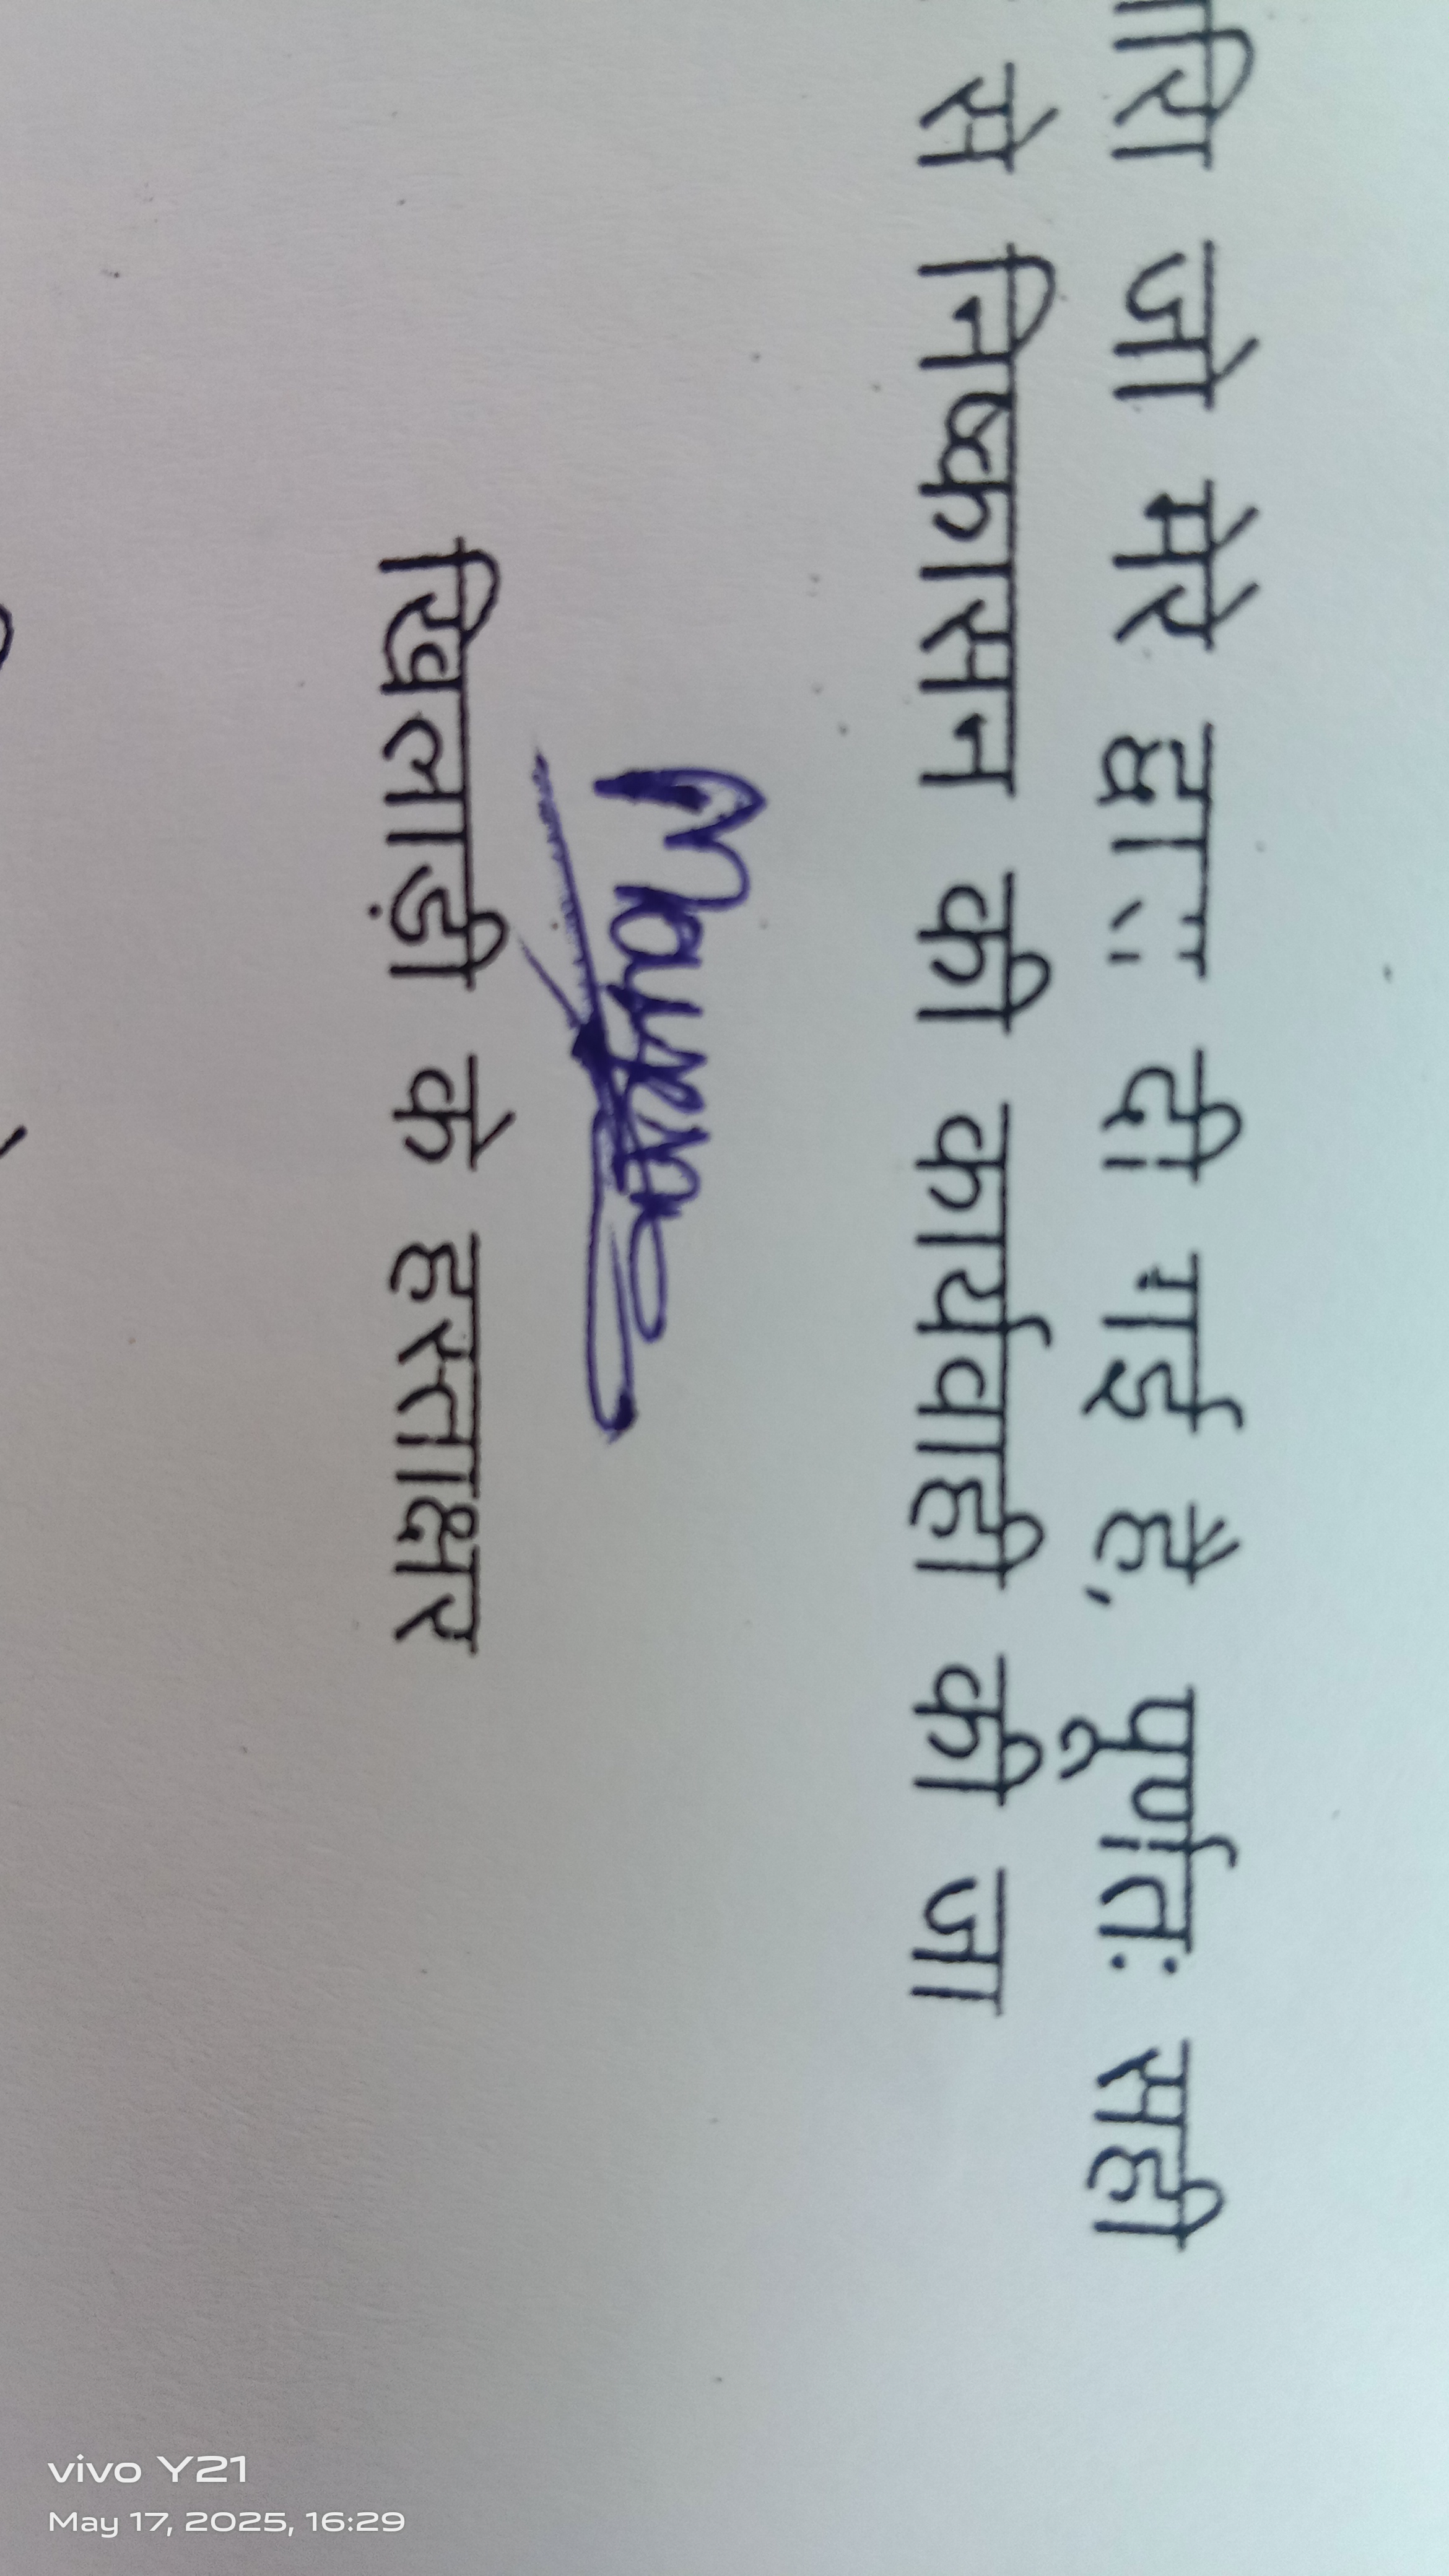 जो मेरे द्वारा दी गई है, पूर्णतः सही
से निष्कासन की कार्यवाही की जा
खिलाड़ी के हस्ताक्षर
vivo Y21
May 17, 2025, 16:29